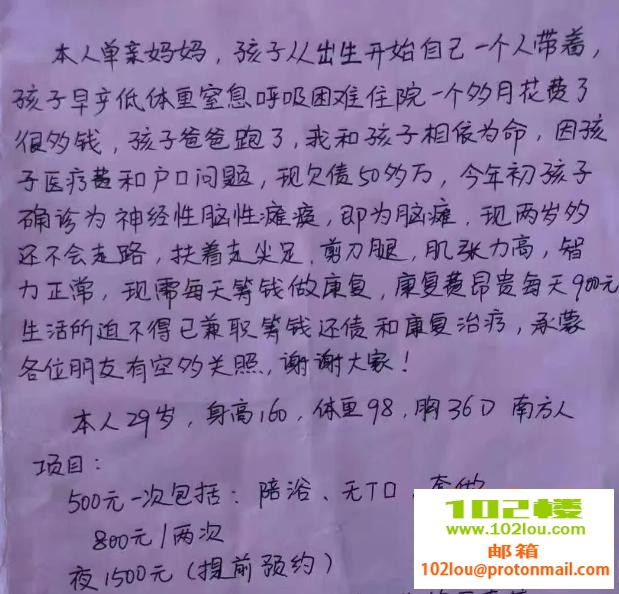 本人单亲妈妈，孩子从出生开始自己一个人带着，
孩子早产低体重窒息呼吸困难住院一个多月花费了
很多钱，孩子爸爸跑了，我和孩子相依为命，因孩
子医疗费和户口问题，现欠债50多万，今年初孩子
确诊为神经性脑性瘫痪，即为脑瘫，现两岁多
还不会走路，扶着走尖足、剪刀腿，肌张力高，智
力正常，现需每天筹钱做康复，康复费昂贵每天900元
生活所迫不得已兼职筹钱还债和康复治疗，承蒙
各位朋友有空多关照，谢谢大家！
本人29岁，身高160，体重98，胸36D 南方人
项目：
500元一次包括：陪浴、无TO、
800元/两次
夜1500元（提前预约）
102楼
www.102lou.com
邮箱
102lou@protonmail.com